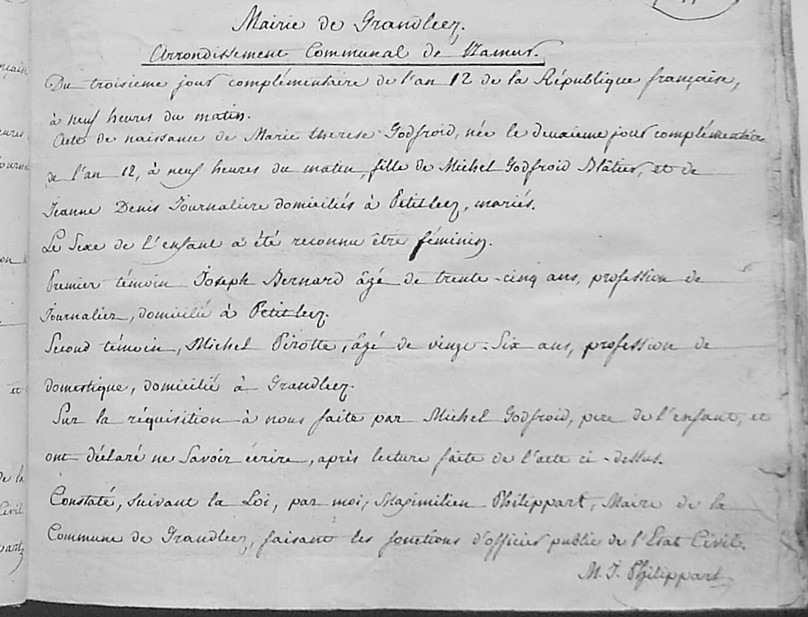 Mairie de Grandleez.
Arrondissement Communal de Namur.
Du troisieme jour complémentaire de l'an 12 de la République française,
à neuf heures du matin.
Acte de naissance de Marie therese Godfroid, née le deuxieme jour complémentaire
de l'an 12, à neuf heures du matin, fille de Michel Godfroid Blâtier, et de
Jeanne Denis Journaliere domiciliés à Petitleez, mariés.
Le Sexe de l'enfant a été reconnu être féminin.
Premier témoin Joseph Bernard âgé de trente-cinq ans, profession de
Journalier, domicilié à Petitleez.
Second témoin, Michel Pirotte, âgé de vingt-Six ans, profession de
domestique, domicilié à Grandleez.
Sur la réquisition à nous faite par Michel Godfroid, pere de l'enfant, et
ont déclaré ne Savoir écrire, après lecture faite de l'acte ci-dessus.
Constaté, suivant la Loi, par moi, Maximilien Philippart, Maire de la
Commune de Grandleez, faisant les fonctions d'officier public de l'Etat Civil.
M. J. Philippart